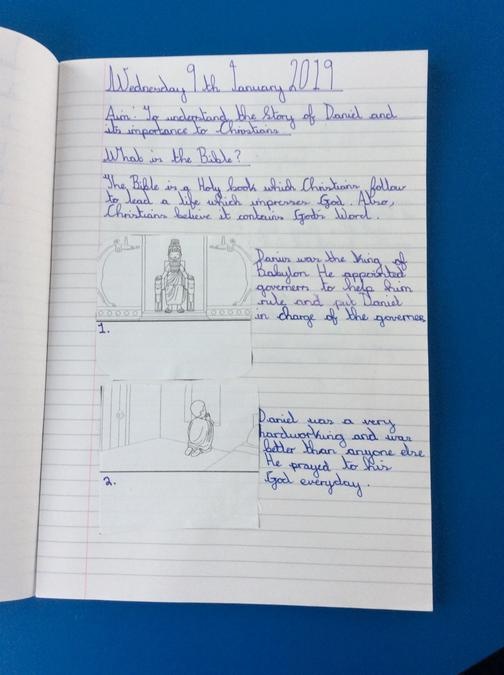 Wednesday 9th January 2019
Aim: To understand the Story of Daniel and
its importance to Christians
What is the Bible?
The Bible is a Holy book which Christians follow
to lead a life which impresses God. Also,
Christians believe it contains God's Word.
Darius was the King of
Babylon. He appointed
governers to help him
rule and put Daniel
in charge of the governers
1.
Daniel was a very
hardworking and was
better than anyone else
He prayed to his
God everyday.
2.